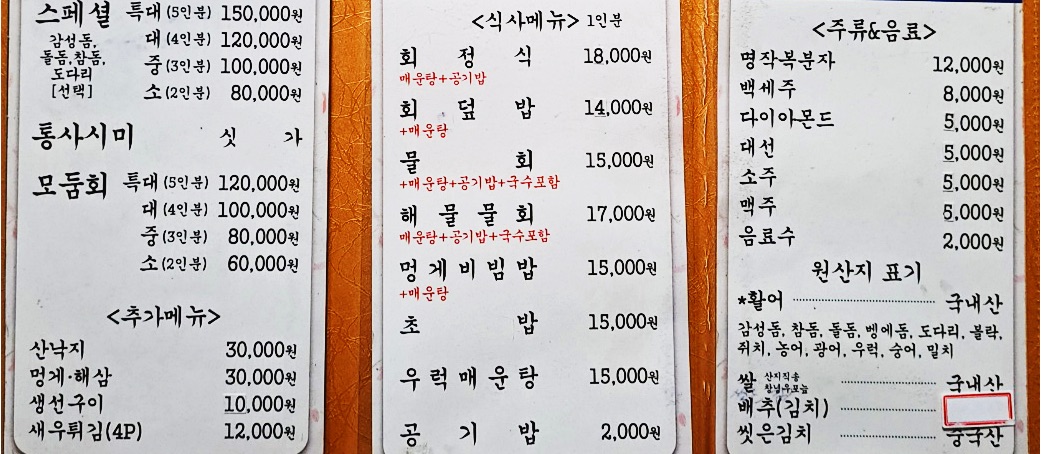 스페셜 특대(5인분) 150,000원
감성돔, 대(4인분) 120,000원
돌돔,참돔, 중(3인분) 100,000원
도다리
[선택] 소(2인분) 80,000원
통사시미 싯 가
모둠회 특대(5인분) 120,000원
대(4인분) 100,000원
중(3인분) 80,000원
소(2인분) 60,000원
<추가메뉴>
산낙지 30,000원
멍게·해삼 30,000원
생선구이 10,000원
새우튀김(4P) 12,000원
<식사메뉴> 1인분
회 정 식 18,000원
매운탕+공기밥
회 덮 밥 14,000원
+매운탕
물 회 15,000원
+매운탕+공기밥+국수포함
해 물 물 회 17,000원
매운탕+공기밥+국수포함
멍게비빔밥 15,000원
+매운탕
초 밥 15,000원
우럭매운탕 15,000원
공 기 밥 2,000원
<주류&음료>
명작복분자 12,000원
백세주 8,000원
다이아몬드 5,000원
대선 5,000원
소주 5,000원
맥주 5,000원
음료수 2,000원
원산지 표기
*활어 국내산
감성돔, 참돔, 돌돔, 벵에돔, 도다리, 볼락,
쥐치, 농어, 광어, 우럭, 숭어, 밀치
쌀 산지직송 국내산
배추(김치)
씻은김치 중국산